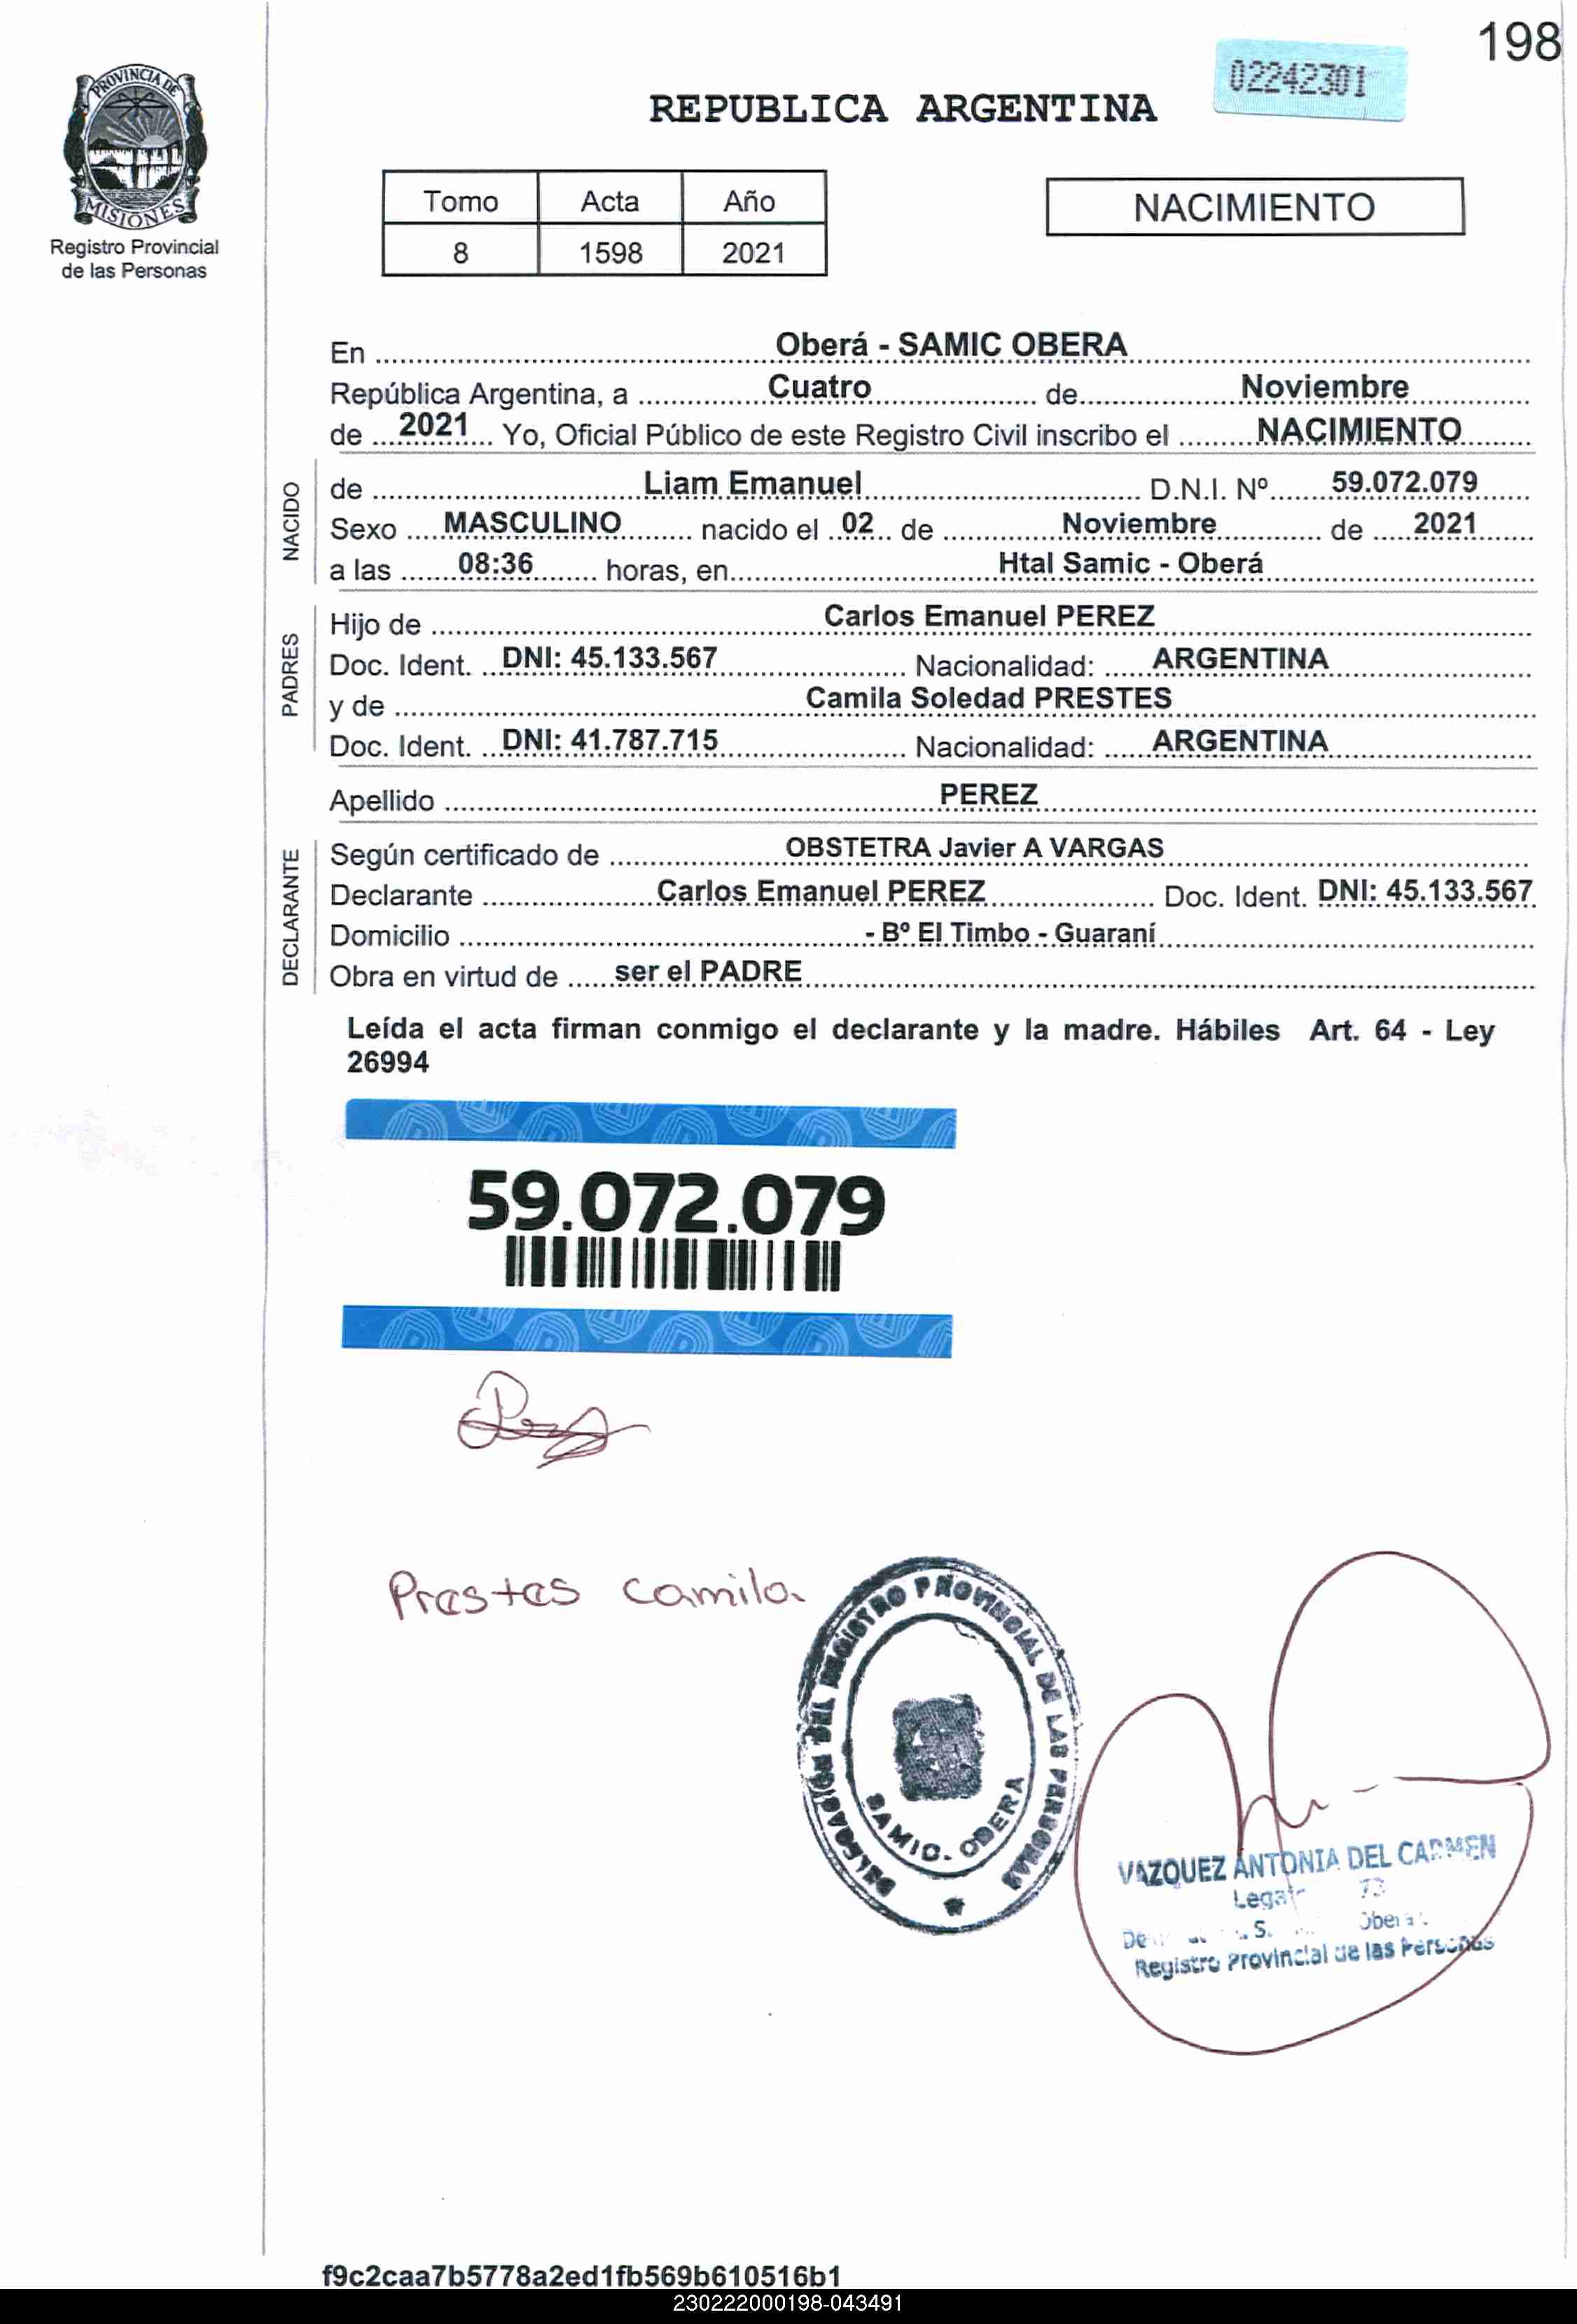 198
02242301
REPUBLICA ARGENTINA
PROVINCIA DE
MISIONES
Registro Provincial
de las Personas
Tomo Acta Año
8 1598 2021
NACIMIENTO
En Oberá - SAMIC OBERA
República Argentina, a Cuatro de Noviembre
de 2021 Yo, Oficial Público de este Registro Civil inscribo el NACIMIENTO
NACIDO
de Liam Emanuel D.N.I. Nº 59.072.079
Sexo MASCULINO nacido el 02 de Noviembre de 2021
a las 08:36 horas, en Htal Samic - Oberá
PADRES
Hijo de Carlos Emanuel PEREZ
Doc. Ident. DNI: 45.133.567 Nacionalidad: ARGENTINA
y de Camila Soledad PRESTES
Doc. Ident. DNI: 41.787.715 Nacionalidad: ARGENTINA
Apellido PEREZ
DECLARANTE
Según certificado de OBSTETRA Javier A VARGAS
Declarante Carlos Emanuel PEREZ Doc. Ident. DNI: 45.133.567
Domicilio - Bº El Timbo - Guaraní
Obra en virtud de ser el PADRE
Leída el acta firman conmigo el declarante y la madre. Hábiles Art. 64 - Ley
26994
59.072.079
Prestes Camila
DELEGACION DEL REGISTRO PROVINCIAL DE LAS PERSONAS
SAMIC. OBERA
VAZQUEZ ANTONIA DEL CARMEN
Registro Provincial de las Personas
f9c2caa7b5778a2ed1fb569b610516b1
230222000198-043491